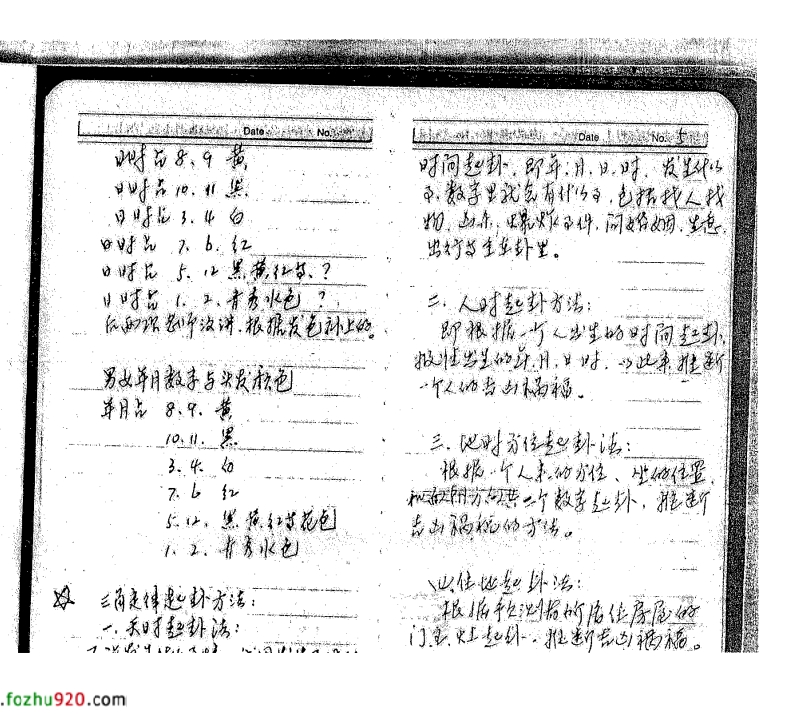 Date No.
日时占 8、9 黄
日时占 10、11 黑
日时占 3、4 白
日时占 7、6、红
日时占 5、12 黑黄红等、?
日时占 1、2、青秀水色 ?
后两项老师没讲,根据发色补上的。
男女年月数字与头发颜色
年月占 8、9、黄
10、11、黑
3、4、白
7、6 红
5、12、黑黄红等花色
1、2、青秀水色
三角定律起卦方法:
一、天时起卦法:
Date No. 5
时间起卦,即年、月、日、时,发生什么
事,数字里就会有什么事,包括找人找
物、凶杀、爆炸事件,问婚姻、生意
出行等全在卦里。
二、人时起卦方法:
即根据一个人出生的时间起卦,
按他出生的年、月、日时,以此来推断
一个人的吉凶祸福。
三、地时方位起卦法:
根据一个人来的方位、坐的位置,
个数字起卦,推断
吉凶祸福的方法。
四住地起卦法:
根据予测者所居住房屋的
门、主、灶起卦,推断吉凶祸福。
.fozhu920.com